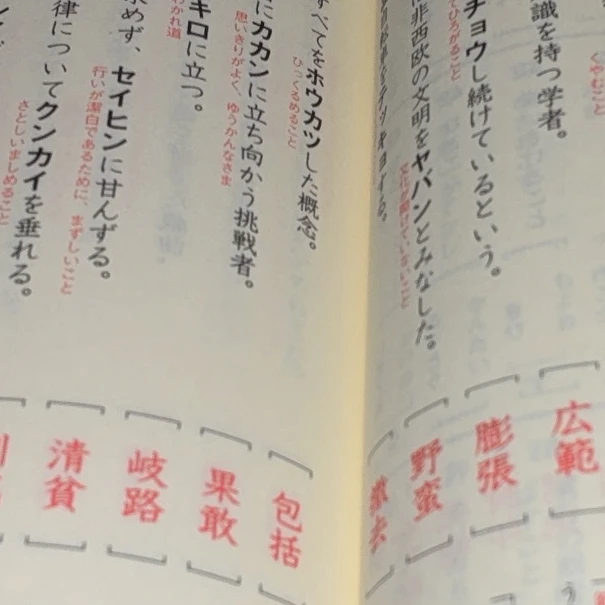 識を持つ学者。
くやむこと
広範
チョウし続けているという。
てひろがること
膨張
非西欧の文明をヤバンとみなした。
文化が開けていないこと
野蛮
撤去
すべてをホウカツした概念。
ひっくるめること
包括
にカカンに立ち向かう挑戦者。
思いきりがよく、ゆうかんなさま
果敢
キロに立つ。
わかれ道
岐路
求めず、セイヒンに甘んずる。
行いが潔白であるために、まずしいこと
清貧
律についてクンカイを垂れる。
さとしいましめること